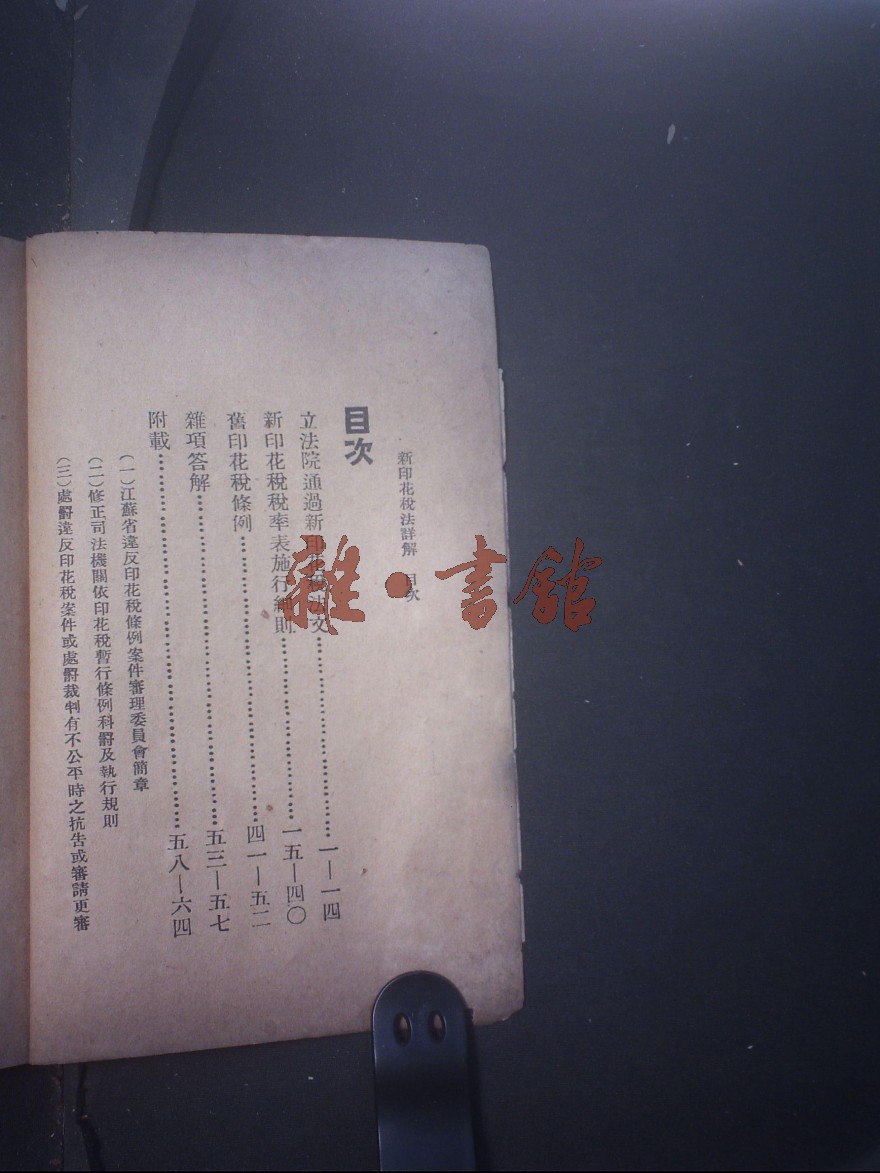 新印花稅法詳解 目次
目次
立法院通過新印花稅法文…………………一—一四
新印花稅稅率表施行細則…………………一五—四〇
舊印花稅條例…………………四一—五二
雜項答解…………………五三—五七
附載…………………五八—六四
（一）江蘇省違反印花稅條例案件審理委員會簡章
（二）修正司法機關依印花稅暫行條例科罸及執行規則
（三）處罸違反印花稅案件或處罸裁判有不公平時之抗告或審請更審
雜·書館